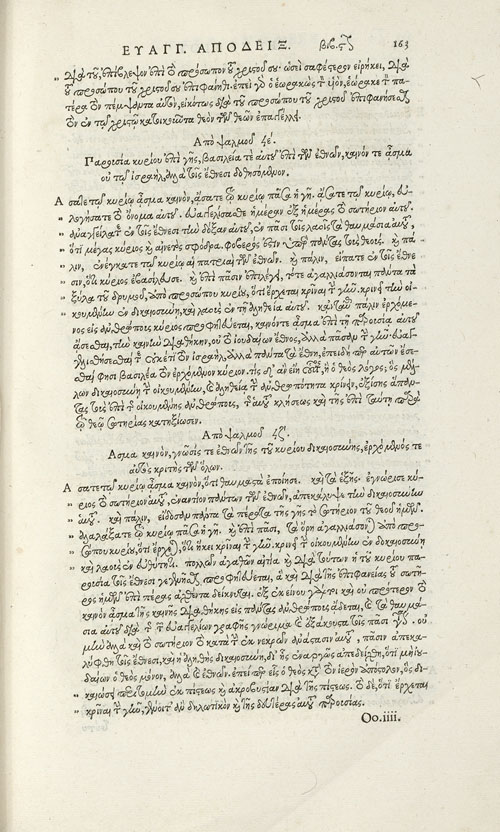 ΕΥΑΓΓ. ΑΠΟΔΕΙΞ. Βιβ. ϛ 163
τοῦ, ἐπίβλεψον ἐπὶ τὸ πρόσωπον τοῦ χριστοῦ σου· ὡσεὶ σαφέστερον εἰρήκει, διὰ
τοῦ προσώπου τοῦ χριστοῦ σου ἐπιφάνηθι. ἐπεὶ γὰρ ὁ ἑωρακὼς τὸν υἱὸν, ἑώρακε τὸν πα-
τέρα τὸν πέμψαντα αὐτὸν, εἰκότως διὰ τοῦ προσώπου τοῦ χριστοῦ ἐπιφανήσεσθαι
τὸν ἐν τῷ χριστῷ κατοικοῦντα θεὸν τῶν θεῶν ἐπαγγέλλει.
Ἀπὸ ψαλμοῦ ϟε.
Παρουσία κυρίου ἐπὶ γῆς, βασιλεία τε αὐτοῦ ἐπὶ τῶν ἐθνῶν, καινόν τε ᾆσμα
οὐ τῷ ἰσραὴλ, ἀλλὰ τοῖς ἔθνεσι δοθησόμενον.
ᾌσατε τῷ κυρίῳ ᾆσμα καινὸν, ᾄσατε τῷ κυρίῳ πᾶσα ἡ γῆ. ᾄσατε τῷ κυρίῳ, εὐ-
λογήσατε τὸ ὄνομα αὐτοῦ. εὐαγγελίσασθε ἡμέραν ἐξ ἡμέρας τὸ σωτήριον αὐτοῦ.
ἀναγγείλατε ἐν τοῖς ἔθνεσι τὴν δόξαν αὐτοῦ, ἐν πᾶσι τοῖς λαοῖς τὰ θαυμάσια αὐτοῦ,
ὅτι μέγας κύριος καὶ αἰνετὸς σφόδρα. φοβερός ἐστιν ὑπὲρ πάντας τοὺς θεούς. καὶ πά-
λιν, ἐνέγκατε τῷ κυρίῳ αἱ πατριαὶ τῶν ἐθνῶν. καὶ πάλιν, εἴπατε ἐν τοῖς ἔθνε-
σιν, ὅτι κύριος ἐβασίλευσε. καὶ ἐπὶ πᾶσιν ἐπιλέγει, τότε ἀγαλλιάσονται πάντα τὰ
ξύλα τοῦ δρυμοῦ, ἀπὸ προσώπου κυρίου, ὅτι ἔρχεται κρῖναι τὴν γῆν. κρινεῖ τὴν οἰ-
κουμένην ἐν δικαιοσύνῃ, καὶ λαοὺς ἐν τῇ ἀληθείᾳ αὐτοῦ. κἀνταῦθα πάλιν ἐρχόμε-
νος εἰς ἀνθρώπους κύριος προφητεύεται, καινόν τε ᾆσμα ἐπὶ τῇ παρουσίᾳ αὐτοῦ
ᾄσεσθαι, τὴν καινὴν διαθήκην, οὐ τὸ ἰουδαίων ἔθνος, ἀλλὰ πᾶσαν τὴν γῆν. εὐαγ-
γελισθήσεσθαί τε οὐκέτι τὸν ἰσραὴλ, ἀλλὰ πάντα τὰ ἔθνη, ἐπειδὴ τῶν αὐτῶν ἔσε-
σθαί φησι βασιλέα τὸν ἐρχόμενον κύριον. τίς δ' ἂν εἴη οὗτος, ἢ ὁ θεὸς λόγος; ὃς μέλ-
λων δικαιοσύνῃ τὴν οἰκουμένην, καὶ ἀληθείᾳ τὴν ἀνθρωπότητα κρίνειν, ἐξίσης ἅπαν-
τας τοὺς ἐπὶ τῆς οἰκουμένης ἀνθρώπους, τῆς αὐτοῦ κλήσεως καὶ τῆς ἐπὶ ταύτῃ παρὰ
τῷ θεῷ σωτηρίας κατηξίωσεν.
Ἀπὸ ψαλμοῦ ϟζ.
ᾎσμα καινὸν, γνῶσίς τε ἐθνῶν τῆς τοῦ κυρίου δικαιοσύνης, ἐρχόμενός τε
αὐτὸς κριτὴς τῶν ὅλων.
ᾌσατε τῷ κυρίῳ ᾆσμα καινὸν, ὅτι θαυμαστὰ ἐποίησε. καὶ τὰ ἑξῆς. ἐγνώρισε κύ-
ριος τὸ σωτήριον αὐτοῦ, ἐναντίον πάντων τῶν ἐθνῶν, ἀπεκάλυψε τὴν δικαιοσύνην
αὐτοῦ. καὶ πάλιν, εἴδοσαν πάντα τὰ πέρατα τῆς γῆς τὸ σωτήριον τοῦ θεοῦ ἡμῶν.
ἀλαλάξατε τῷ κυρίῳ πᾶσα ἡ γῆ. καὶ ἐπὶ πᾶσι, τὰ ὄρη ἀγαλλιάσονται ἀπὸ προσ-
ώπου κυρίου, ὅτι ἔρχεται, ὅτι ἥκει κρῖναι τὴν γῆν. κρινεῖ τὴν οἰκουμένην ἐν δικαιοσύνῃ
καὶ λαοὺς ἐν εὐθύτητι. πολλῶν ἀγαθῶν αἰτία καὶ διὰ τούτων ἡ τοῦ κυρίου πα-
ρουσία τοῖς ἔθνεσι γεγενῆσθαι προφητεύεται, ἃ καὶ διὰ τῆς ἐπιφανείας τοῦ σωτῆ-
ρος ἡμῶν ἐπὶ πέρας ἀχθέντα δείκνυται. ἐξ ἐκείνου γάρ τοι καὶ οὐ πρότερον τὸ
καινὸν ᾆσμα τῆς καινῆς διαθήκης εἰς πάντας ἀνθρώπους ᾄδεται, καὶ τὰ θαυμά-
σια αὐτοῦ διὰ τῆς τῶν εὐαγγελίων γραφῆς γνώριμα καὶ ἐξάκουστα τοῖς πᾶσι γέγονεν. οὐ
μὴν ἀλλὰ καὶ τὸ σωτήριον τὸ κατὰ τὴν ἐκ νεκρῶν ἀνάστασιν αὐτοῦ, πᾶσιν ἀπεκα-
λύφθη τοῖς ἔθνεσι, καὶ ἡ ἀληθὴς δικαιοσύνη, δι' ἧς ἐναργῶς ἀπεδείχθη, ὅτι μὴ ἰου-
δαίων ὁ θεὸς μόνον, ἀλλὰ καὶ ἐθνῶν. ἐπείπερ εἷς ὁ θεὸς κατὰ τὸν ἱερὸν ἀπόστολον, ὃς δι-
καιώσει περιτομὴν ἐκ πίστεως καὶ ἀκροβυστίαν διὰ τῆς πίστεως. τὸ δὲ, ὅτι ἔρχεται
κρῖναι τὴν γῆν, γένοιτ' ἂν δηλωτικὸν καὶ τῆς δευτέρας αὐτοῦ παρουσίας.
Oo.iiii.